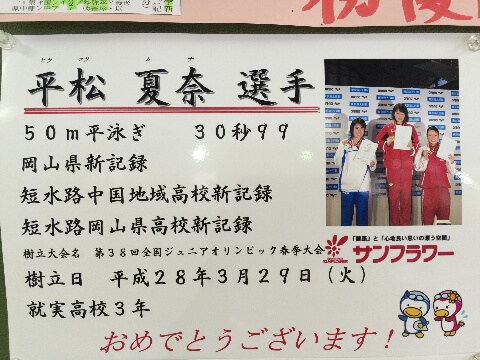 平松 夏奈 選手
50m平泳ぎ 30秒99
岡山県新記録
短水路中国地域高校新記録
短水路岡山県高校新記録
樹立大会名 第38回全国ジュニアオリンピック春季大会
樹立日 平成28年3月29日(火)
就実高校3年
サンフラワー
おめでとうございます!